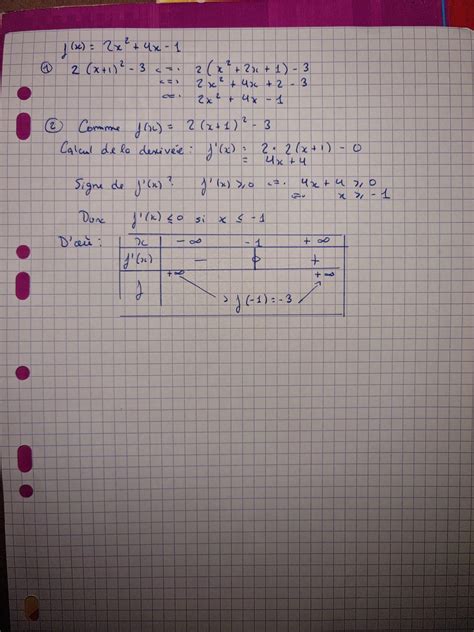 f(x) = 2x² + 4x - 1
① 2(x+1)² - 3 <=> 2(x² + 2x + 1) - 3
<=> 2x² + 4x + 2 - 3
<=> 2x² + 4x - 1
② Comme f(x) = 2(x+1)² - 3
Calcul de la derivée : f'(x) = 2 × 2(x+1) - 0
= 4x + 4
Signe de f'(x) : f'(x) ⩾ 0 <=> 4x + 4 ⩾ 0
<=> x ⩾ -1
Donc f'(x) ⩽ 0 si x ⩽ -1
D'où : x -∞ -1 +∞
f'(x) - 0 +
f +∞ f(-1) = -3 +∞